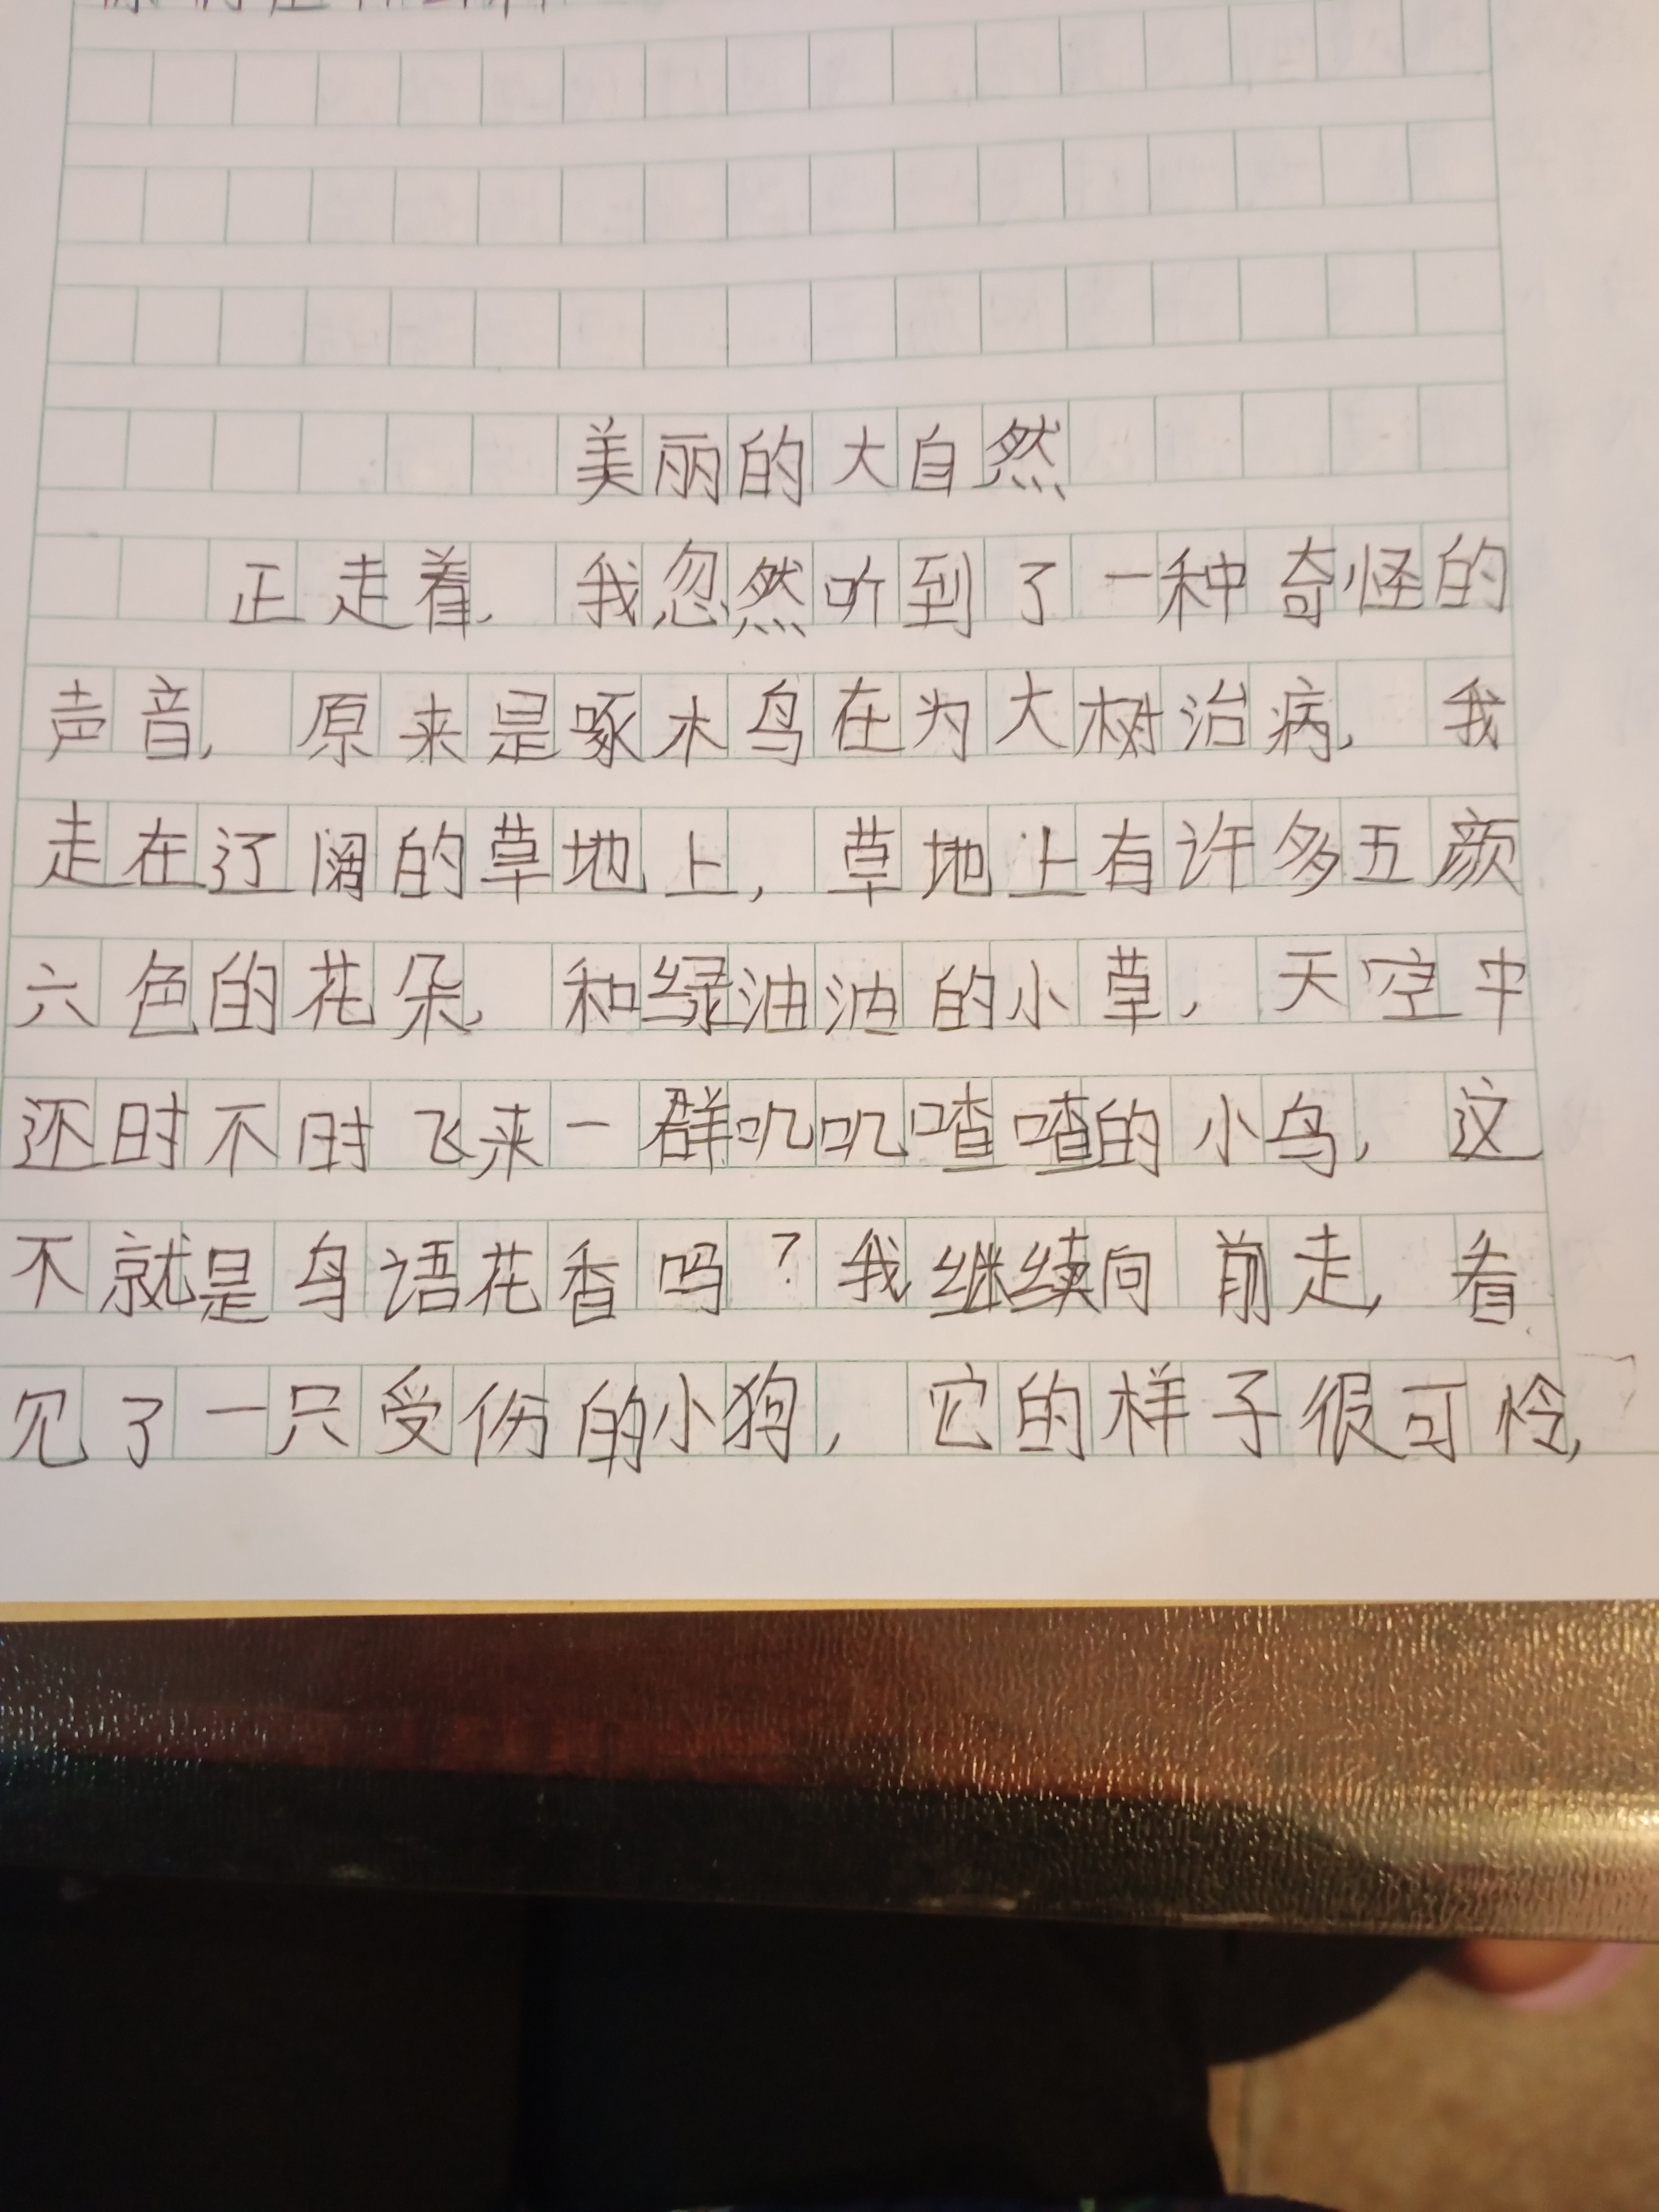 美丽的大自然
正走着,我忽然听到了一种奇怪的
声音,原来是啄木鸟在为大树治病,我
走在辽阔的草地上,草地上有许多五颜
六色的花朵,和绿油油的小草,天空中
还时不时飞来一群叽叽喳喳的小鸟,这
不就是鸟语花香吗?我继续向前走,看
见了一只受伤的小狗,它的样子很可怜,